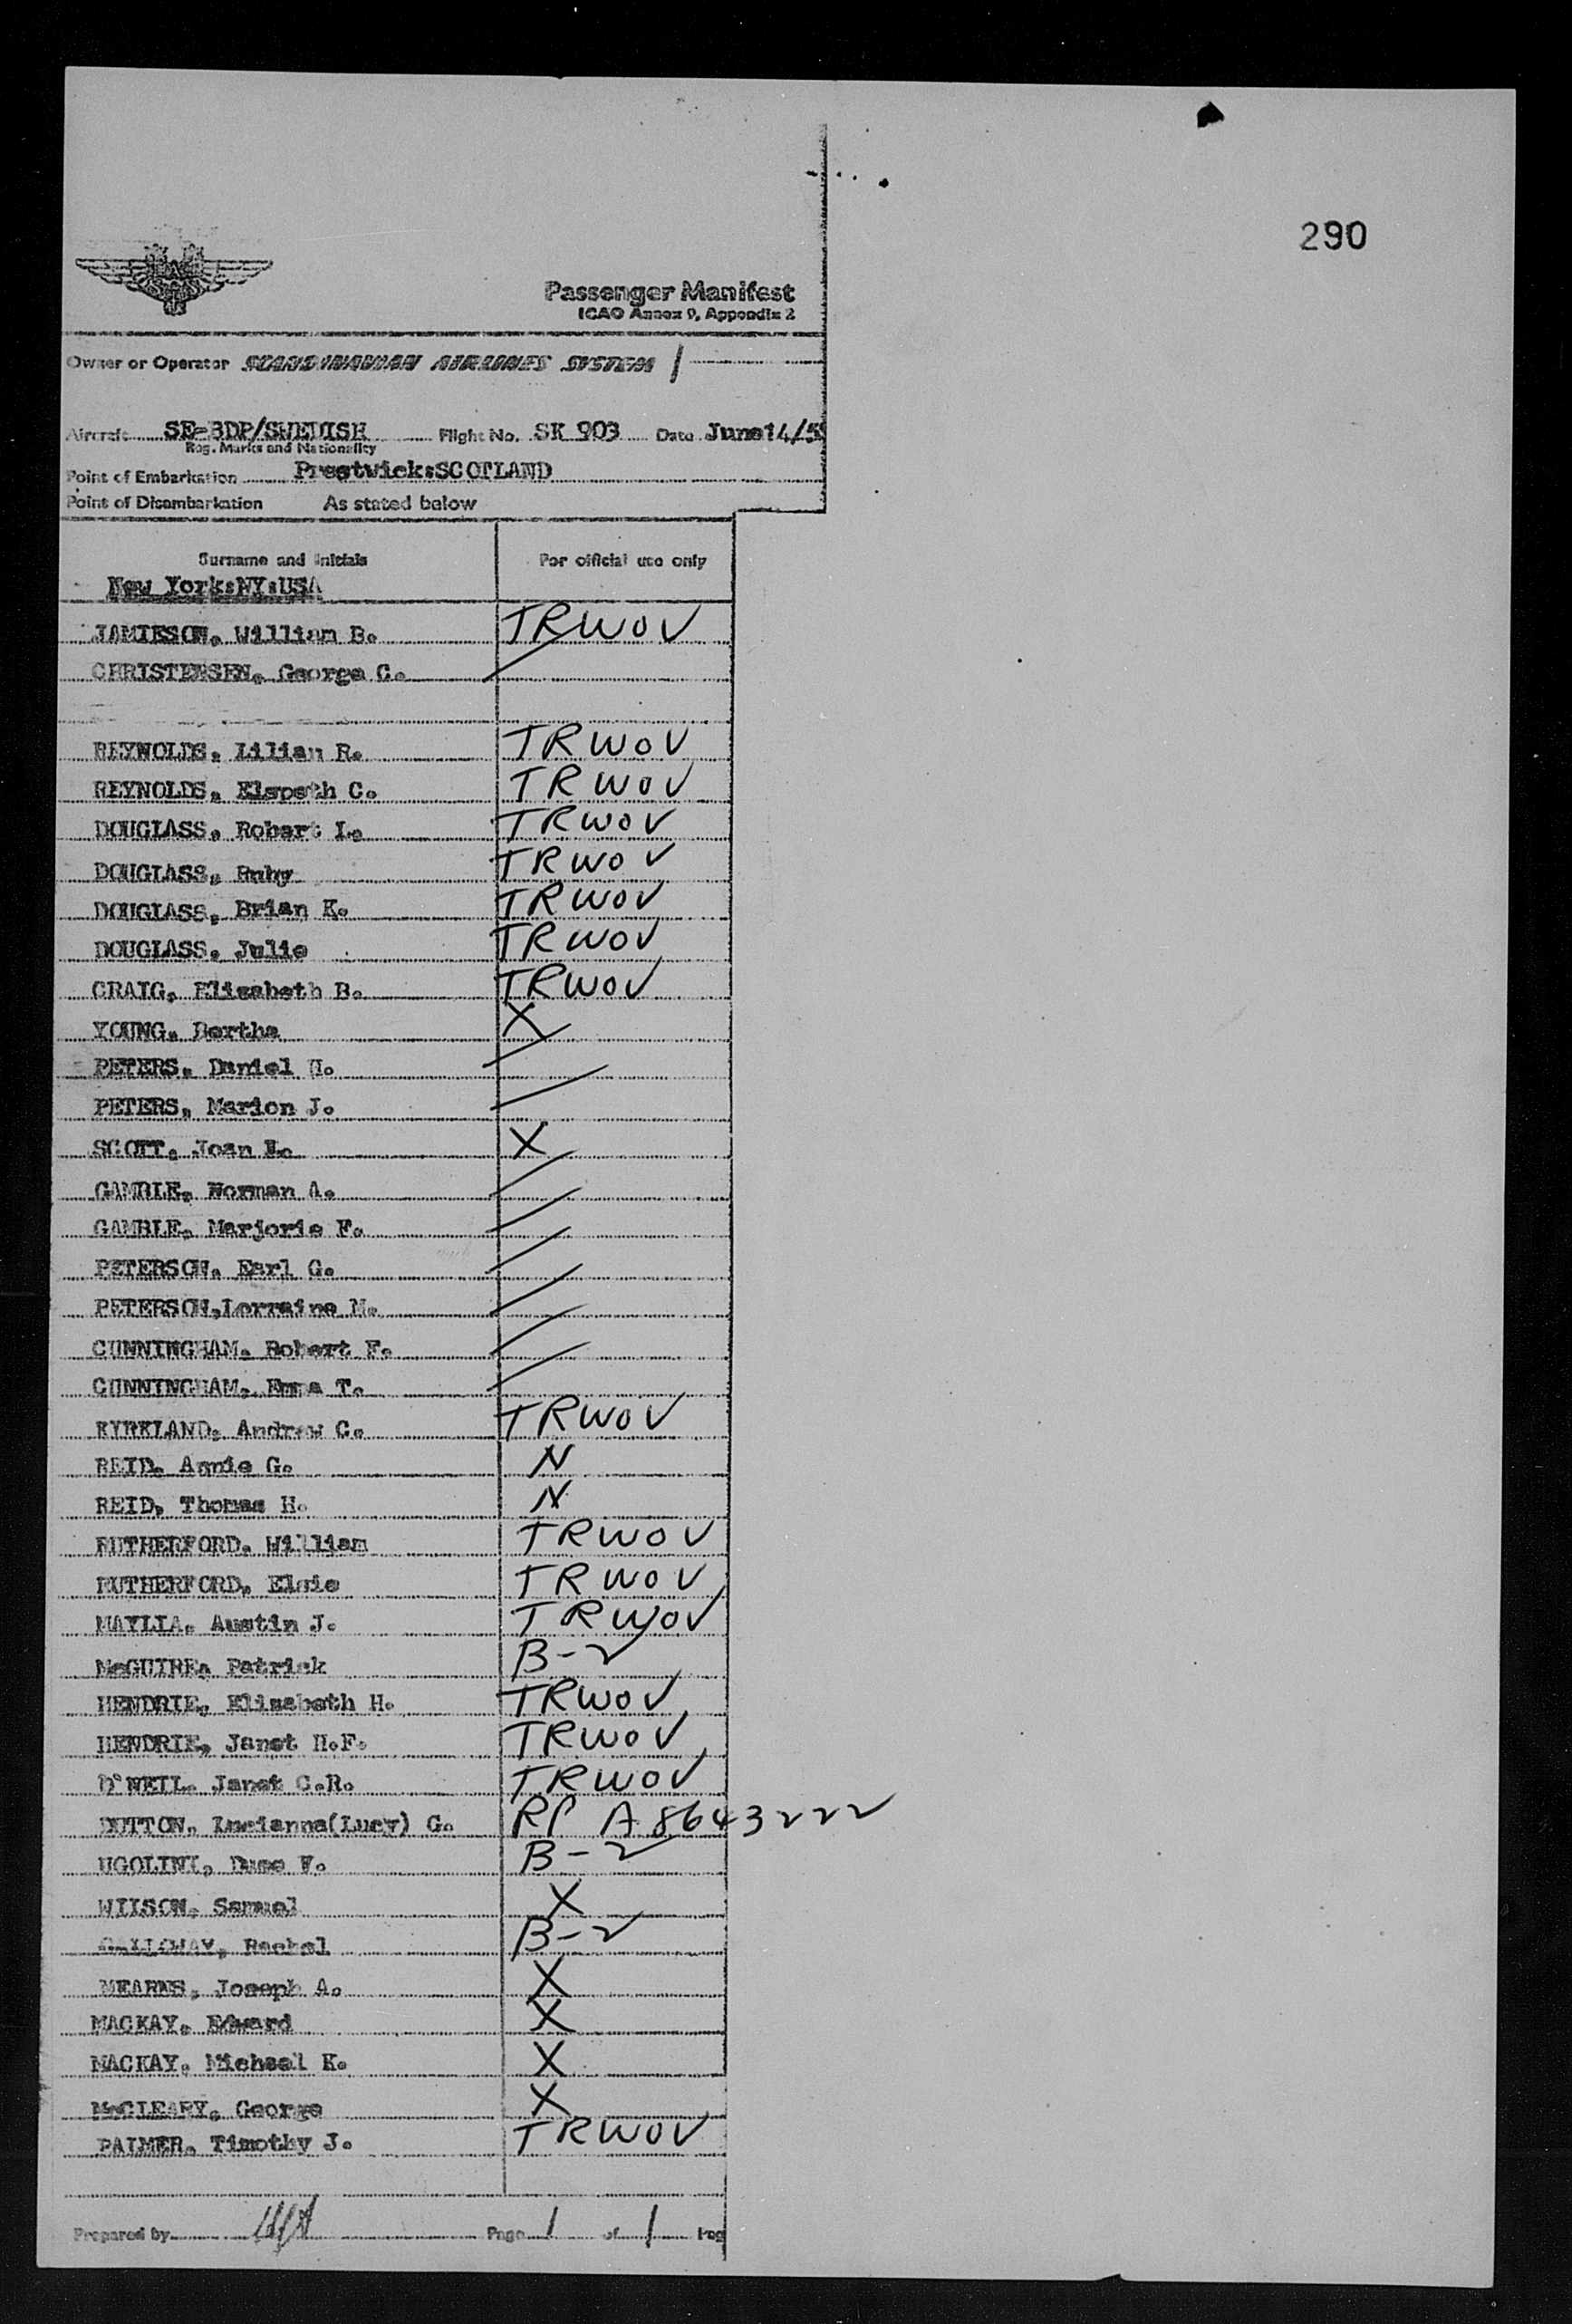 290
Passenger Manifest
ICAO Annex 9, Appendix 2
Owner or Operator SCANDINAVIAN AIRLINES SYSTEM
Aircraft SE-BDP/SWEDISH Flight No. SK 903 Date June 14/5
Reg. Marks and Nationality
Point of Embarkation Prestwick:SCOTLAND
Point of Disembarkation As stated below
Surname and initials For official use only
New York:NY:USA
JAMIESON, William B. TRWOV
CHRISTENSEN, George C. /
REYNOLDS, Lilian R. TRWOV
REYNOLDS, Elspeth C. TRWOV
DOUGLASS, Robert I. TRWOV
DOUGLASS, Ruby TRWOV
DOUGLASS, Brian K. TRWOV
DOUGLASS, Julie TRWOV
CRAIG, Elisabeth B. TRWOV
YOUNG, Bertha X
PETERS, Daniel H. /
PETERS, Marion J. /
SCOTT, Joan X
GAMBLE, Norman A. /
GAMBLE, Marjorie F. /
PETERSON, Earl G. /
PETERSON,Lorraine M. /
CUNNINGHAM, Robert F. /
CUNNINGHAM, Emma T. /
KYRKLAND, Andrew C. TRWOV
REID, Annie G. N
REID, Thomas H. N
RUTHERFORD, William TRWOV
RUTHERFORD, Elsie TRWOV
MAYLIA, Austin J. TRWOV
McGUIRE, Patrick B-2
HENDRIE, Elisabeth H. TRWOV
HENDRIE, Janet H.F. TRWOV
O'NEIL, Janet C.R. TRWOV
DUTTON, Lucianna(Lucy) G. RP A8643222
UGOLINI, Duse F. B-2
WILSON, Samuel X
GALLOWAY, Rachel B-2
MEARNS, Joseph A. X
MACKAY, Edward X
MACKAY, Micheal K. X
McCLEARY, George X
PALMER, Timothy J. TRWOV
Prepared by Page 1 of 1 Pag